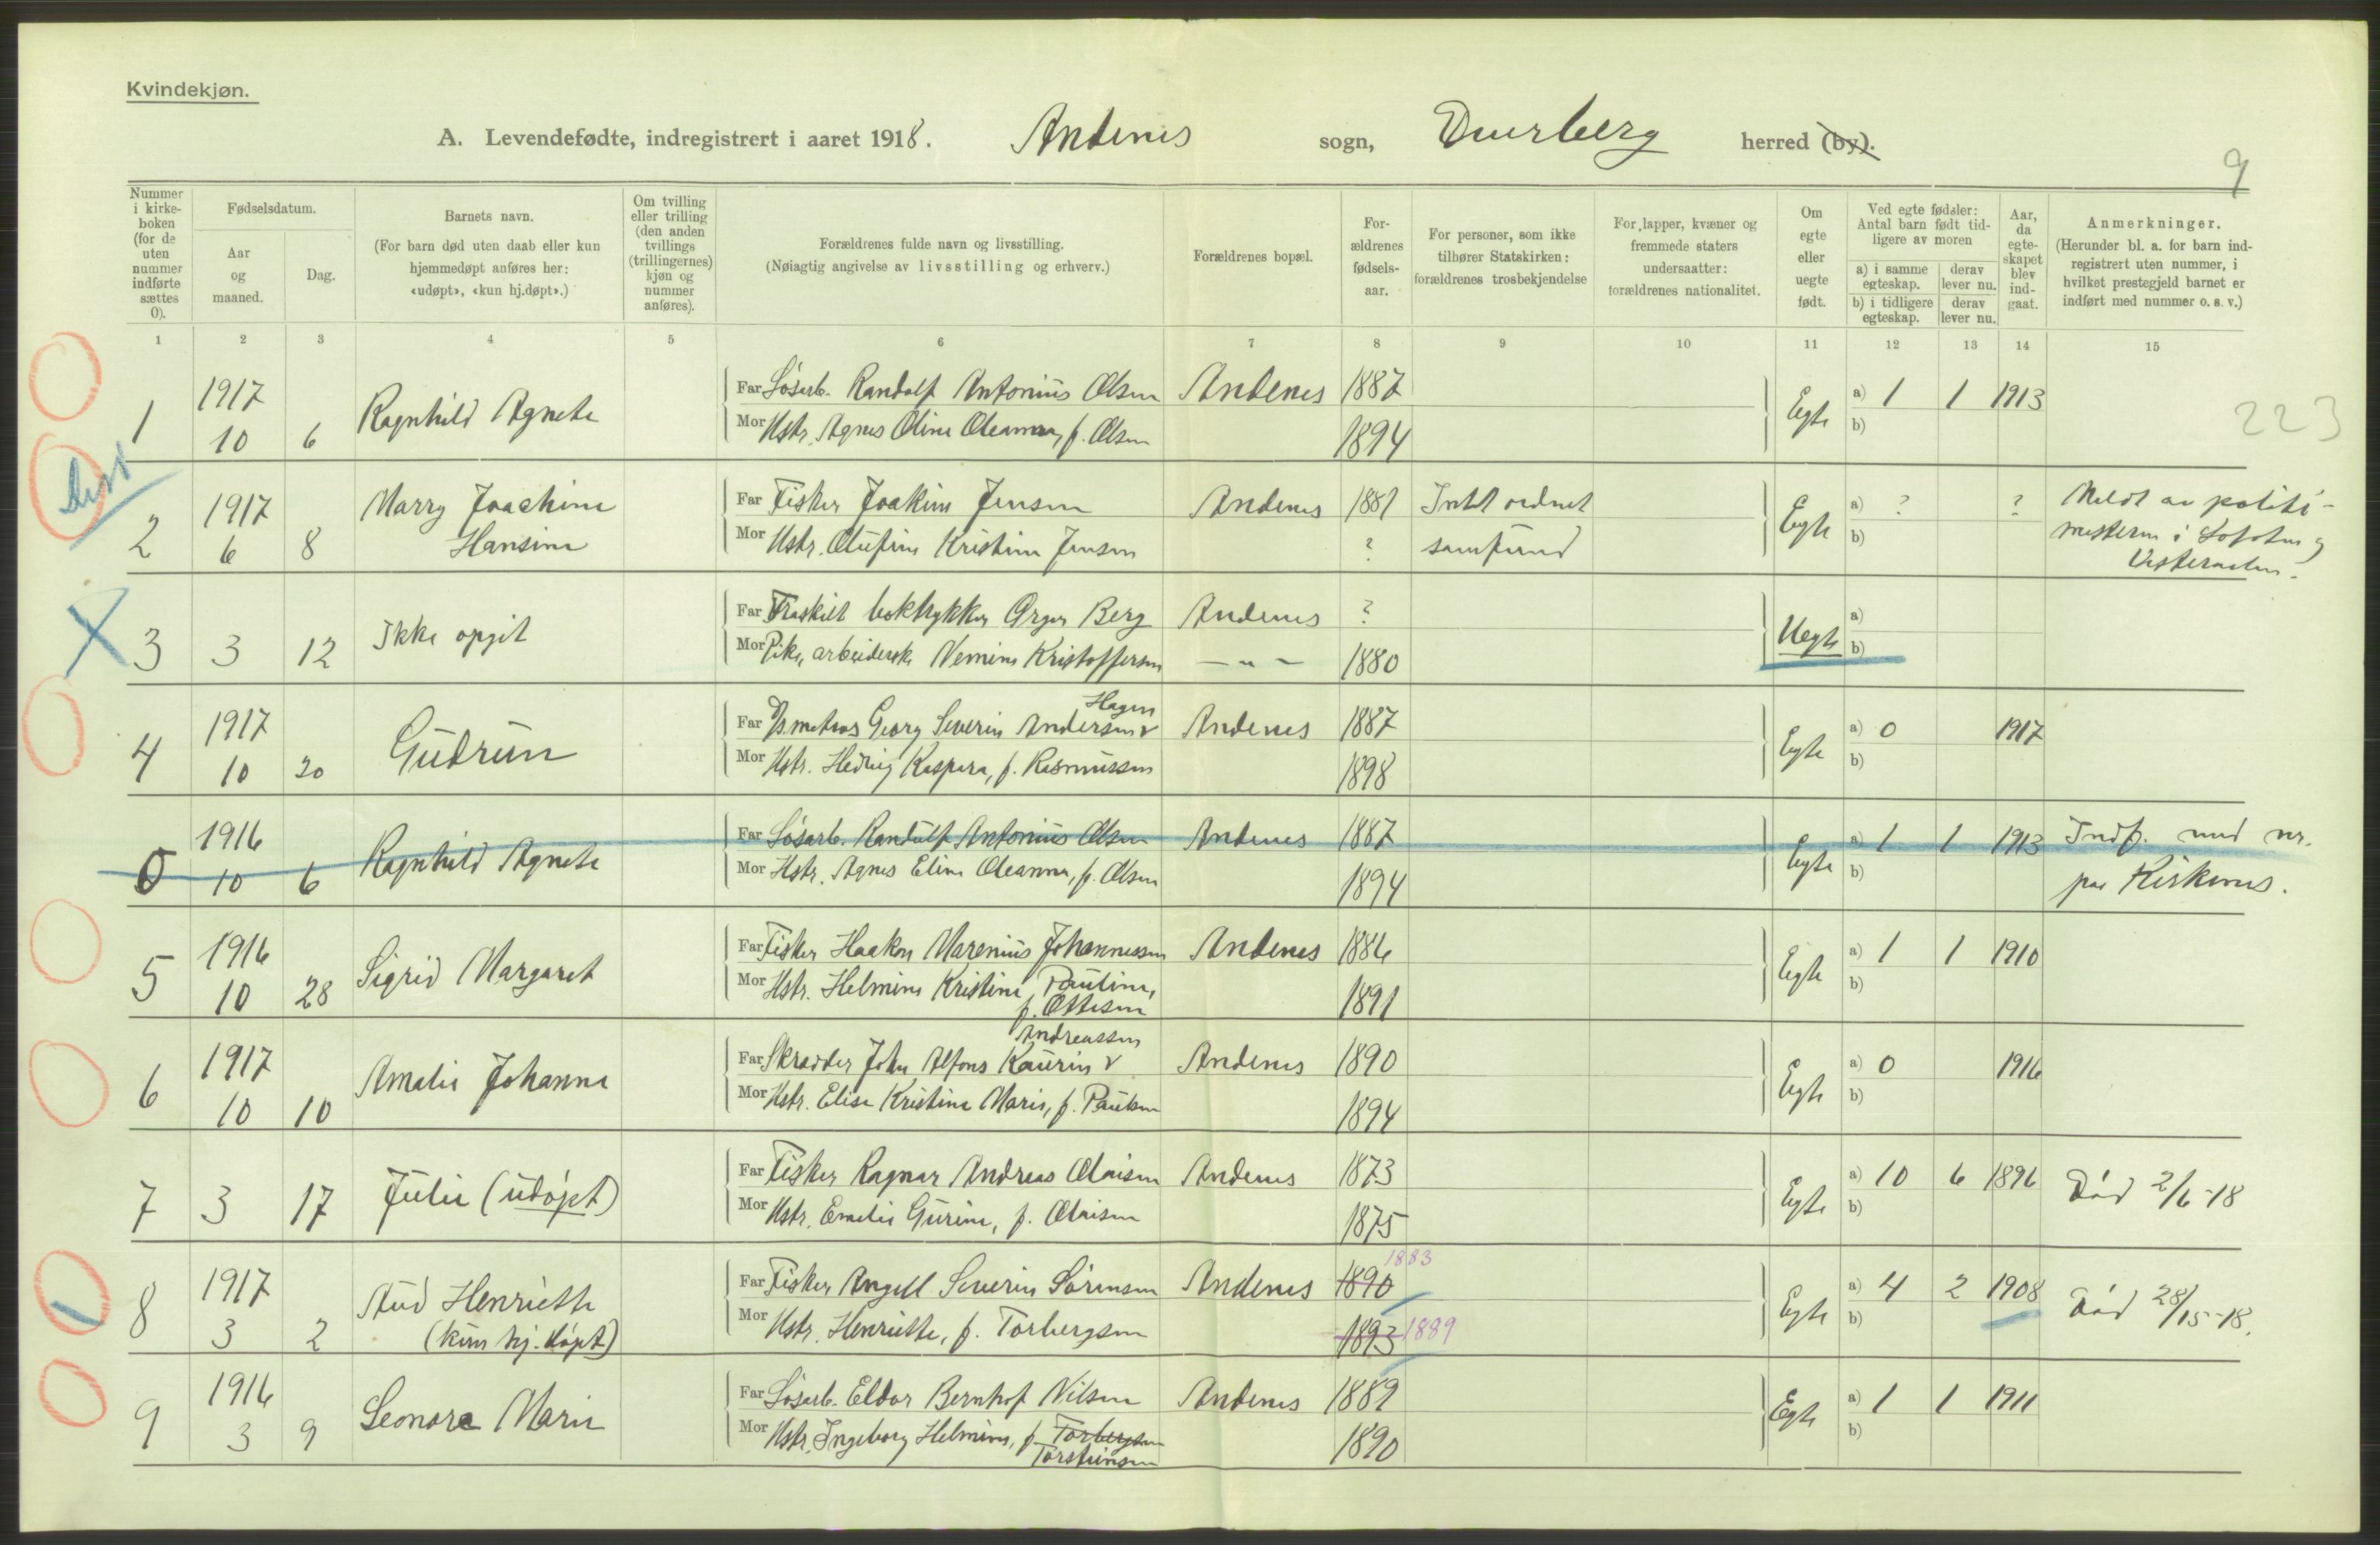 Kvindekjøn.
A. Levendefødte, indregistrert i aaret 1918. Andenes sogn, Dverberg herred (by).
9
Nummer i kirke-boken (for de uten nummer indførte sættes 0).
Fødselsdatum.
Aar og maaned.
Dag.
Barnets navn.
(For barn død uten daab eller kun hjemmedøpt anføres her: «udøpt», «kun hj.døpt».)
Om tvilling eller trilling (den anden tvillings (trillingernes) kjøn og nummer anføres).
Forældrenes fulde navn og livsstilling.
(Nøiagtig angivelse av livsstilling og erhverv.)
Forældrenes bopæl.
For-ældrenes fødsels-aar.
For personer, som ikke tilhører Statskirken: forældrenes trosbekjendelse
For lapper, kvæner og fremmede staters undersaatter: forældrenes nationalitet.
Om egte eller uegte født.
Ved egte fødsler: Antal barn født tid-ligere av moren
a) i samme egteskap.
derav lever nu.
b) i tidligere egteskap.
derav lever nu.
Aar, da egte-skapet blev ind-gaat.
Anmerkninger.
(Herunder bl. a. for barn ind-registrert uten nummer, i hvilket prestegjeld barnet er indført med nummer o. s. v.)
1 2 3 4 5 6 7 8 9 10 11 12 13 14 15
1917 Far Løsarb. Randolf Antonius Olsen Andenes 1887 a) 1 1 1913
1 10 6 Ragnhild Agnete Mor Hstr. Agnes Oline Oleanna, f. Olsen 1894 Egte b)
223
1917 Marry Joachime Far Fisker Joakim Jensen Andenes 1881 Intet ordnet a) ? ? Meldt av politi-
2 6 8 Hansine Mor Hstr. Olufine Kristine Jensen ? samfund Egte b) mesteren i Lofoten og
Vesteraalen.
Far Fraskilt boktrykker Ørger Berg Andenes ? a)
3 3 12 Ikke opgit Mor Pike, arbeiderske Nemine Kristoffersen — „ — 1880 Uegte b)
Hagen
1917 Far matros Georg Severin Andersen v Andenes 1887 a) 0 1917
4 10 20 Gudrun Mor Hstr. Hedvig Kaspara, f. Rasmussen 1898 Egte b)
1916 Far Løsarb. Randulf Antonius Olsen Andenes 1887 a) 1 1 1913 Indf. med nr.
0 10 6 Ragnhild Agnete Mor Hstr. Agnes Eline Oleanna, f. Olsen 1894 Egte b) paa Kirkenes.
1916 Far Fisker Haakon Marenius Johannessen Andenes 1886 a) 1 1 1910
5 10 28 Sigrid Margaret Mor Hstr. Helmine Kristine Pauline, 1891 Egte b)
f. Ottesen
Andreassen
1917 Far Skrædder John Alfons Kaurin v Andenes 1890 a) 0 1916
6 10 10 Amalie Johanne Mor Hstr. Elise Kristine Marie, f. Paulsen 1894 Egte b)
Far Fisker Ragnar Andreas Olaisen Andenes 1873 a) 10 6 1896 Død 2/6-18
7 3 17 Julie (udøpt) Mor Hstr. Emelie Gurine, f. Olaisen 1875 Egte b)
1883
1917 Far Fisker Angell Severin Sørensen Andenes 1890 a) 4 2 1908 Død 28/15-18.
8 3 2 Aud Henriette Mor Hstr. Henriette, f. Torbergsen 1893 1889 Egte b)
(kun hj. døpt)
1916 Far Løsarb. Eldor Bernhof Nilsen Andenes 1889 a) 1 1 1911
9 3 9 Leonore Marie Mor Hstr. Ingeborg Helmine, f. Torbergsen 1890 Egte b)
Torsteinsen